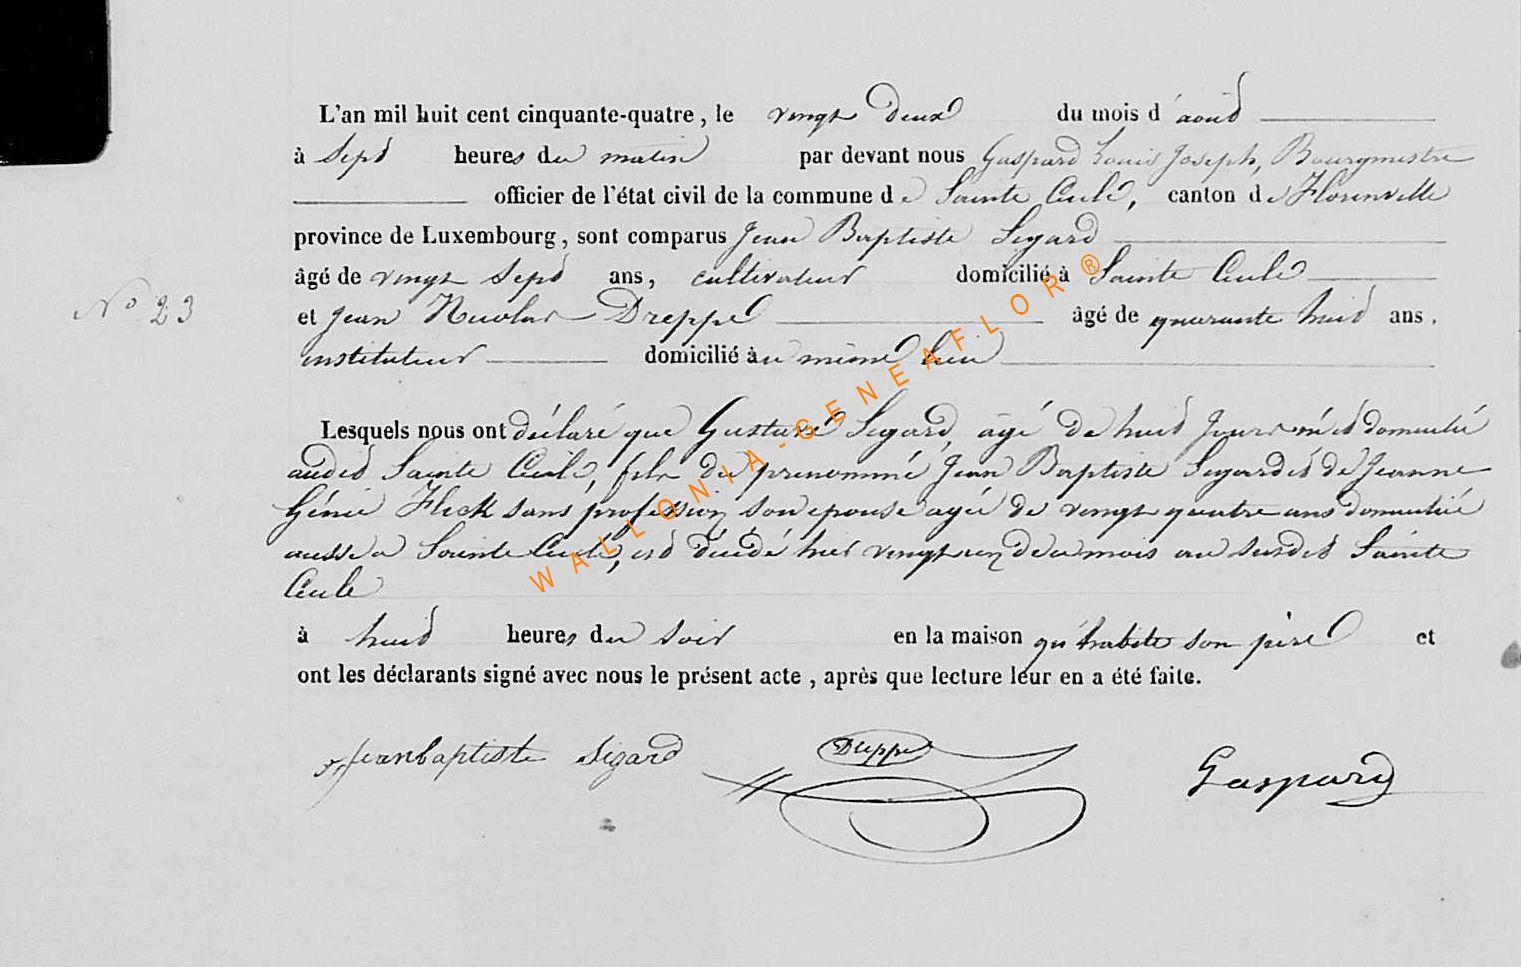 L'an mil huit cent cinquante-quatre, le vingt deux du mois d'aout
à sept heures du matin par devant nous Gaspard Louis Joseph, Bourgmestre
officier de l'état civil de la commune de Sainte Cécile, canton de Florenville
province de Luxembourg, sont comparus Jean Baptiste Sigard
âgé de vingt sept ans, cultivateur domicilié à Sainte Cécile
N° 23
et Jean Nicolas Dreppe âgé de quarante huit ans,
instituteur domicilié au même lieu
Lesquels nous ont déclaré que Gustave Sigard, agé de huit jours né et domicilié
audit Sainte Cécile, fils du prénommé Jean Baptiste Sigard et de Jeanne
Génie Fleck sans profession son epouse agée de vingt quatre ans domiciliée
aussi a Sainte Cécile, est décédé hier vingt un de ce mois au susdit Sainte
Cécile
à huit heures du soir en la maison qu'habite son père et
ont les déclarants signé avec nous le présent acte, après que lecture leur en a été faite.
Jean baptiste Sigard Dreppe Gaspard
WALLONIA-GENEAFLOR®